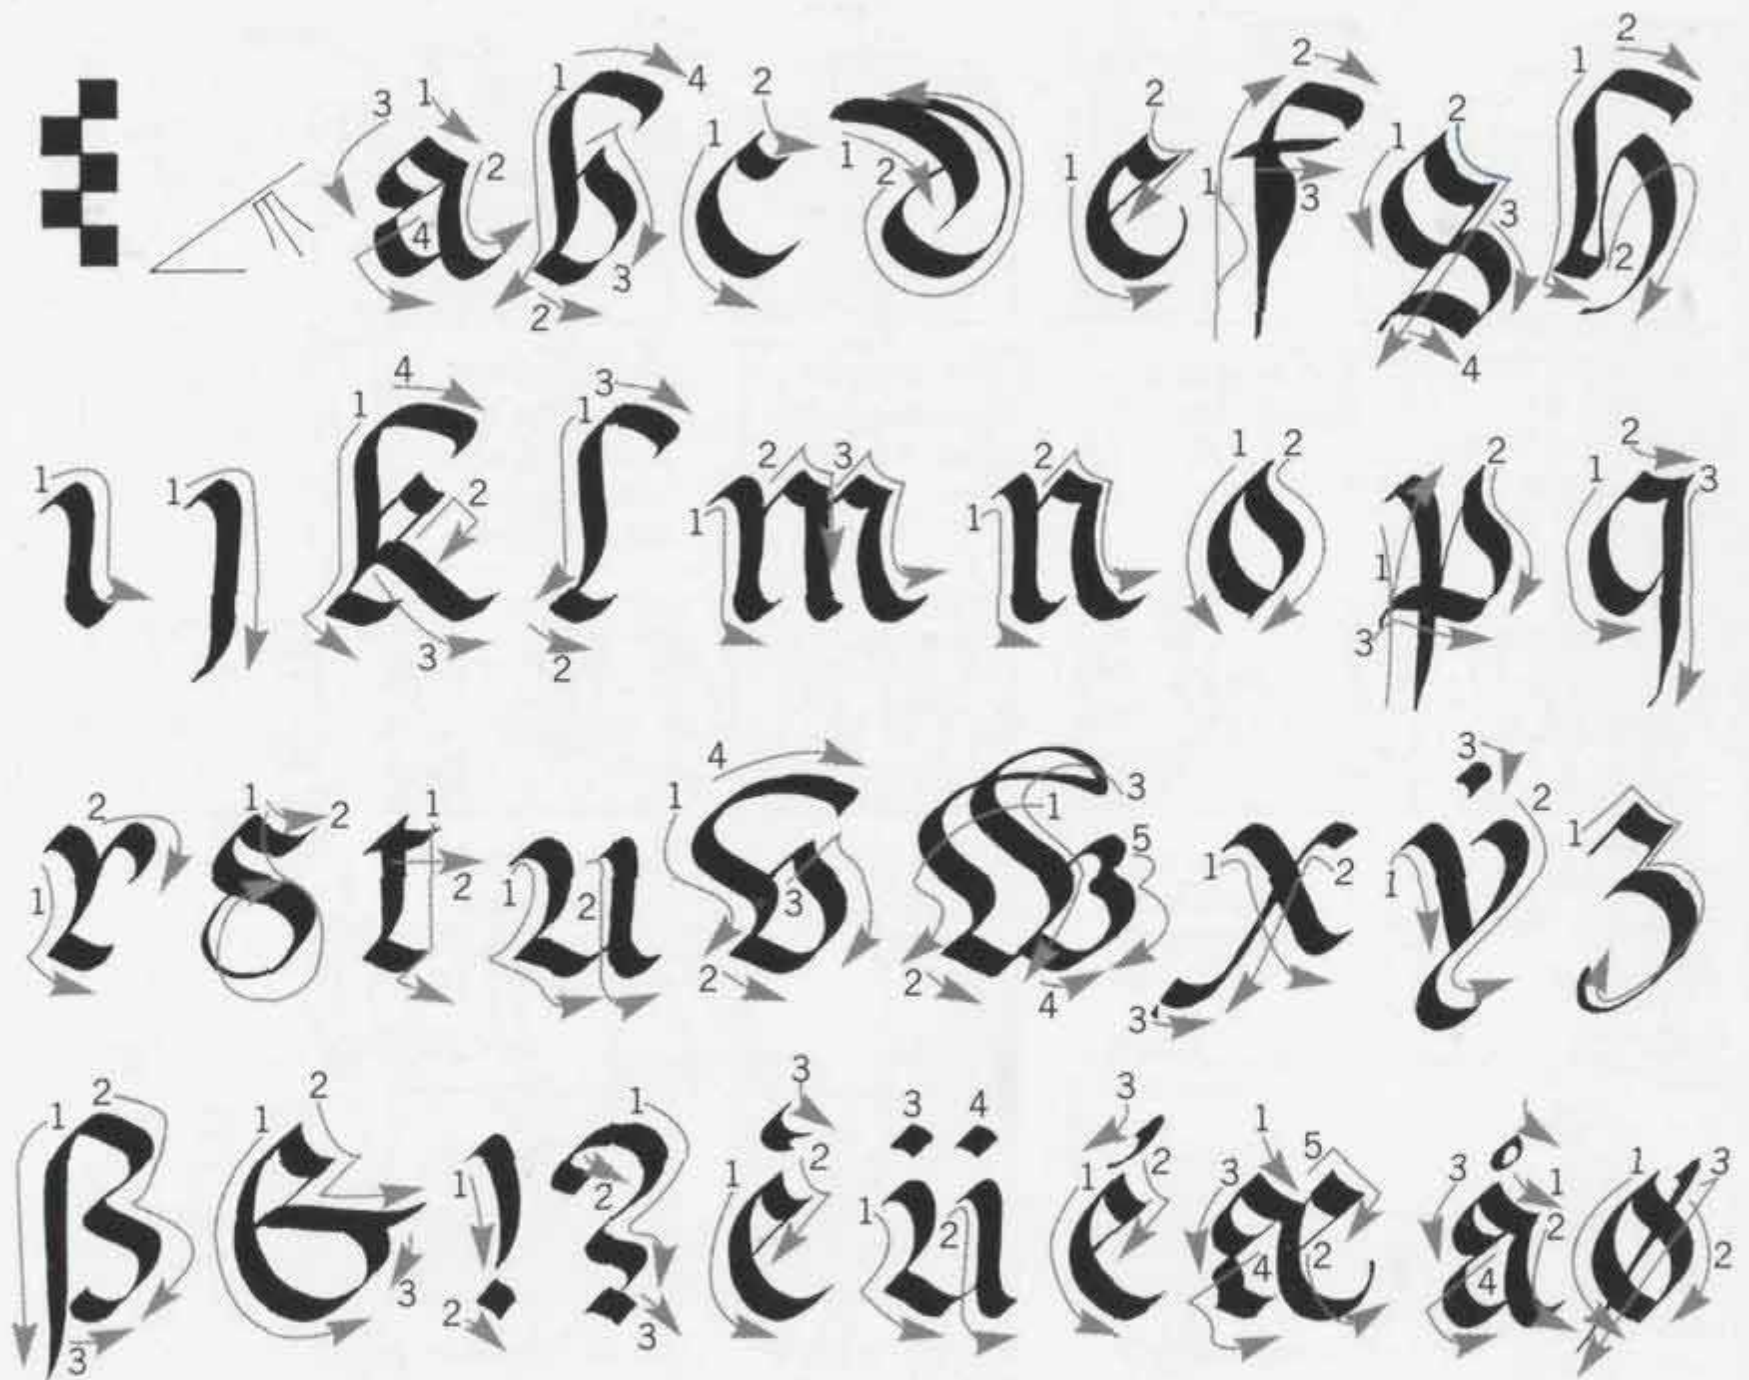 a b c d e f g h
ı ȷ k l m n o p q
r s t u v w x ẏ z
ß & ! ? ė ü é æ å ø